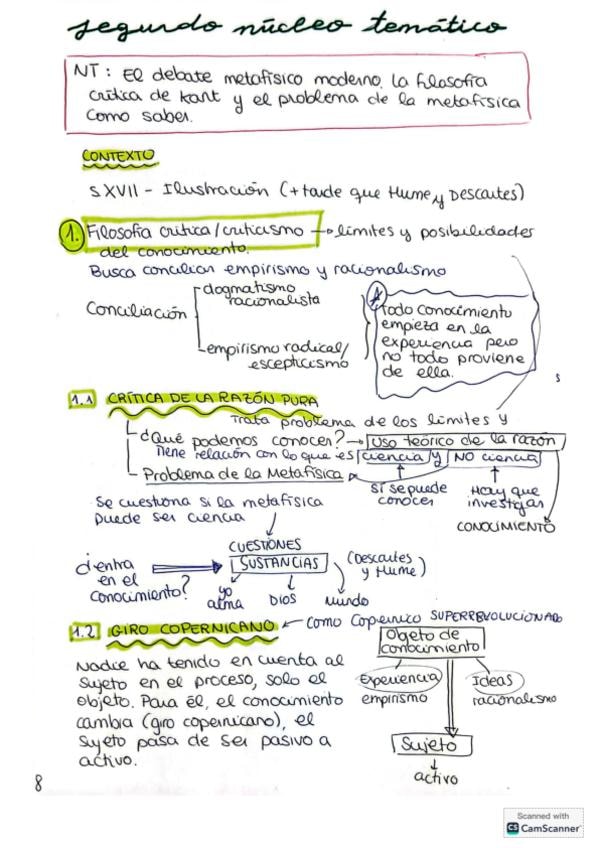 segundo núcleo temático
NT: El debate metafísico moderno. La filosofía
crítica de Kant y el problema de la metafísica
como saber.
CONTEXTO
S XVII - Ilustración (+ tarde que Hume y Descartes)
1. Filosofía crítica/criticismo → límites y posibilidades
del conocimiento.
Busca conciliar empirismo y racionalismo
Conciliación
dogmatismo
racionalista
empirismo radical/
escepticismo
Todo conocimiento
empieza en la
experiencia pero
no todo proviene
de ella.
s
1.1 CRÍTICA DE LA RAZÓN PURA
Trata problema de los límites y
¿Qué podemos conocer? → Uso teórico de la razón
Tiene relación con lo que es ciencia y NO ciencia
Problema de la Metafísica
sí se puede
conocer
Hay que
investigar
CONOCIMIENTO
Se cuestiona si la metafísica
puede ser ciencia
CUESTIONES
SUSTANCIAS
(Descartes
y Hume)
¿entra
en el
conocimiento?
yo
alma
Dios
Mundo
1.2 GIRO COPERNICANO ← como Copernico SUPERREVOLUCIONARO
Nadie ha tenido en cuenta al
sujeto en el proceso, solo el
objeto. Para él, el conocimiento
cambia (giro copernicano), el
sujeto pasa de ser pasivo a
activo.
Objeto de
conocimiento
Experiencia
empirismo
Ideas
racionalismo
Sujeto
activo
8
Scanned with
CS CamScanner